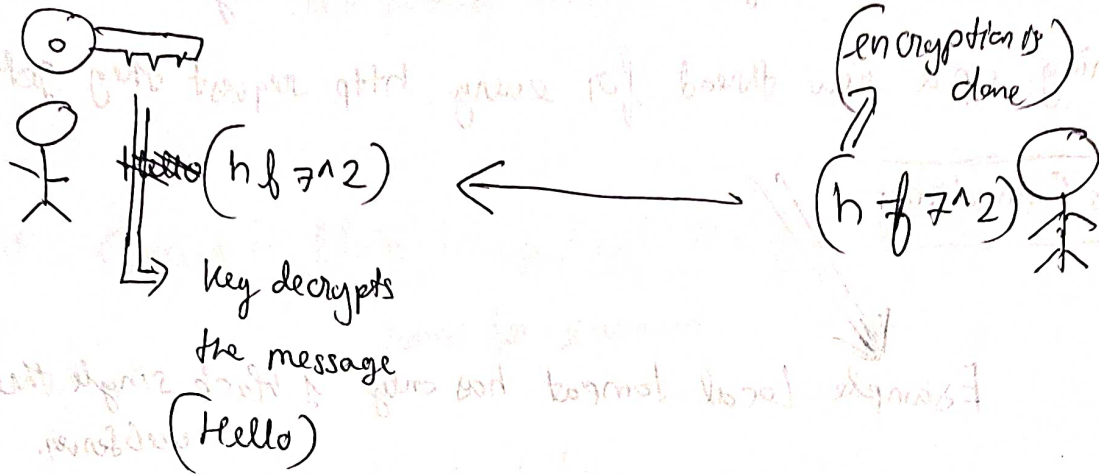 (encryption is
done)
(h f 7^2)
(h f 7^2)
key decrypts
the message
(Hello)